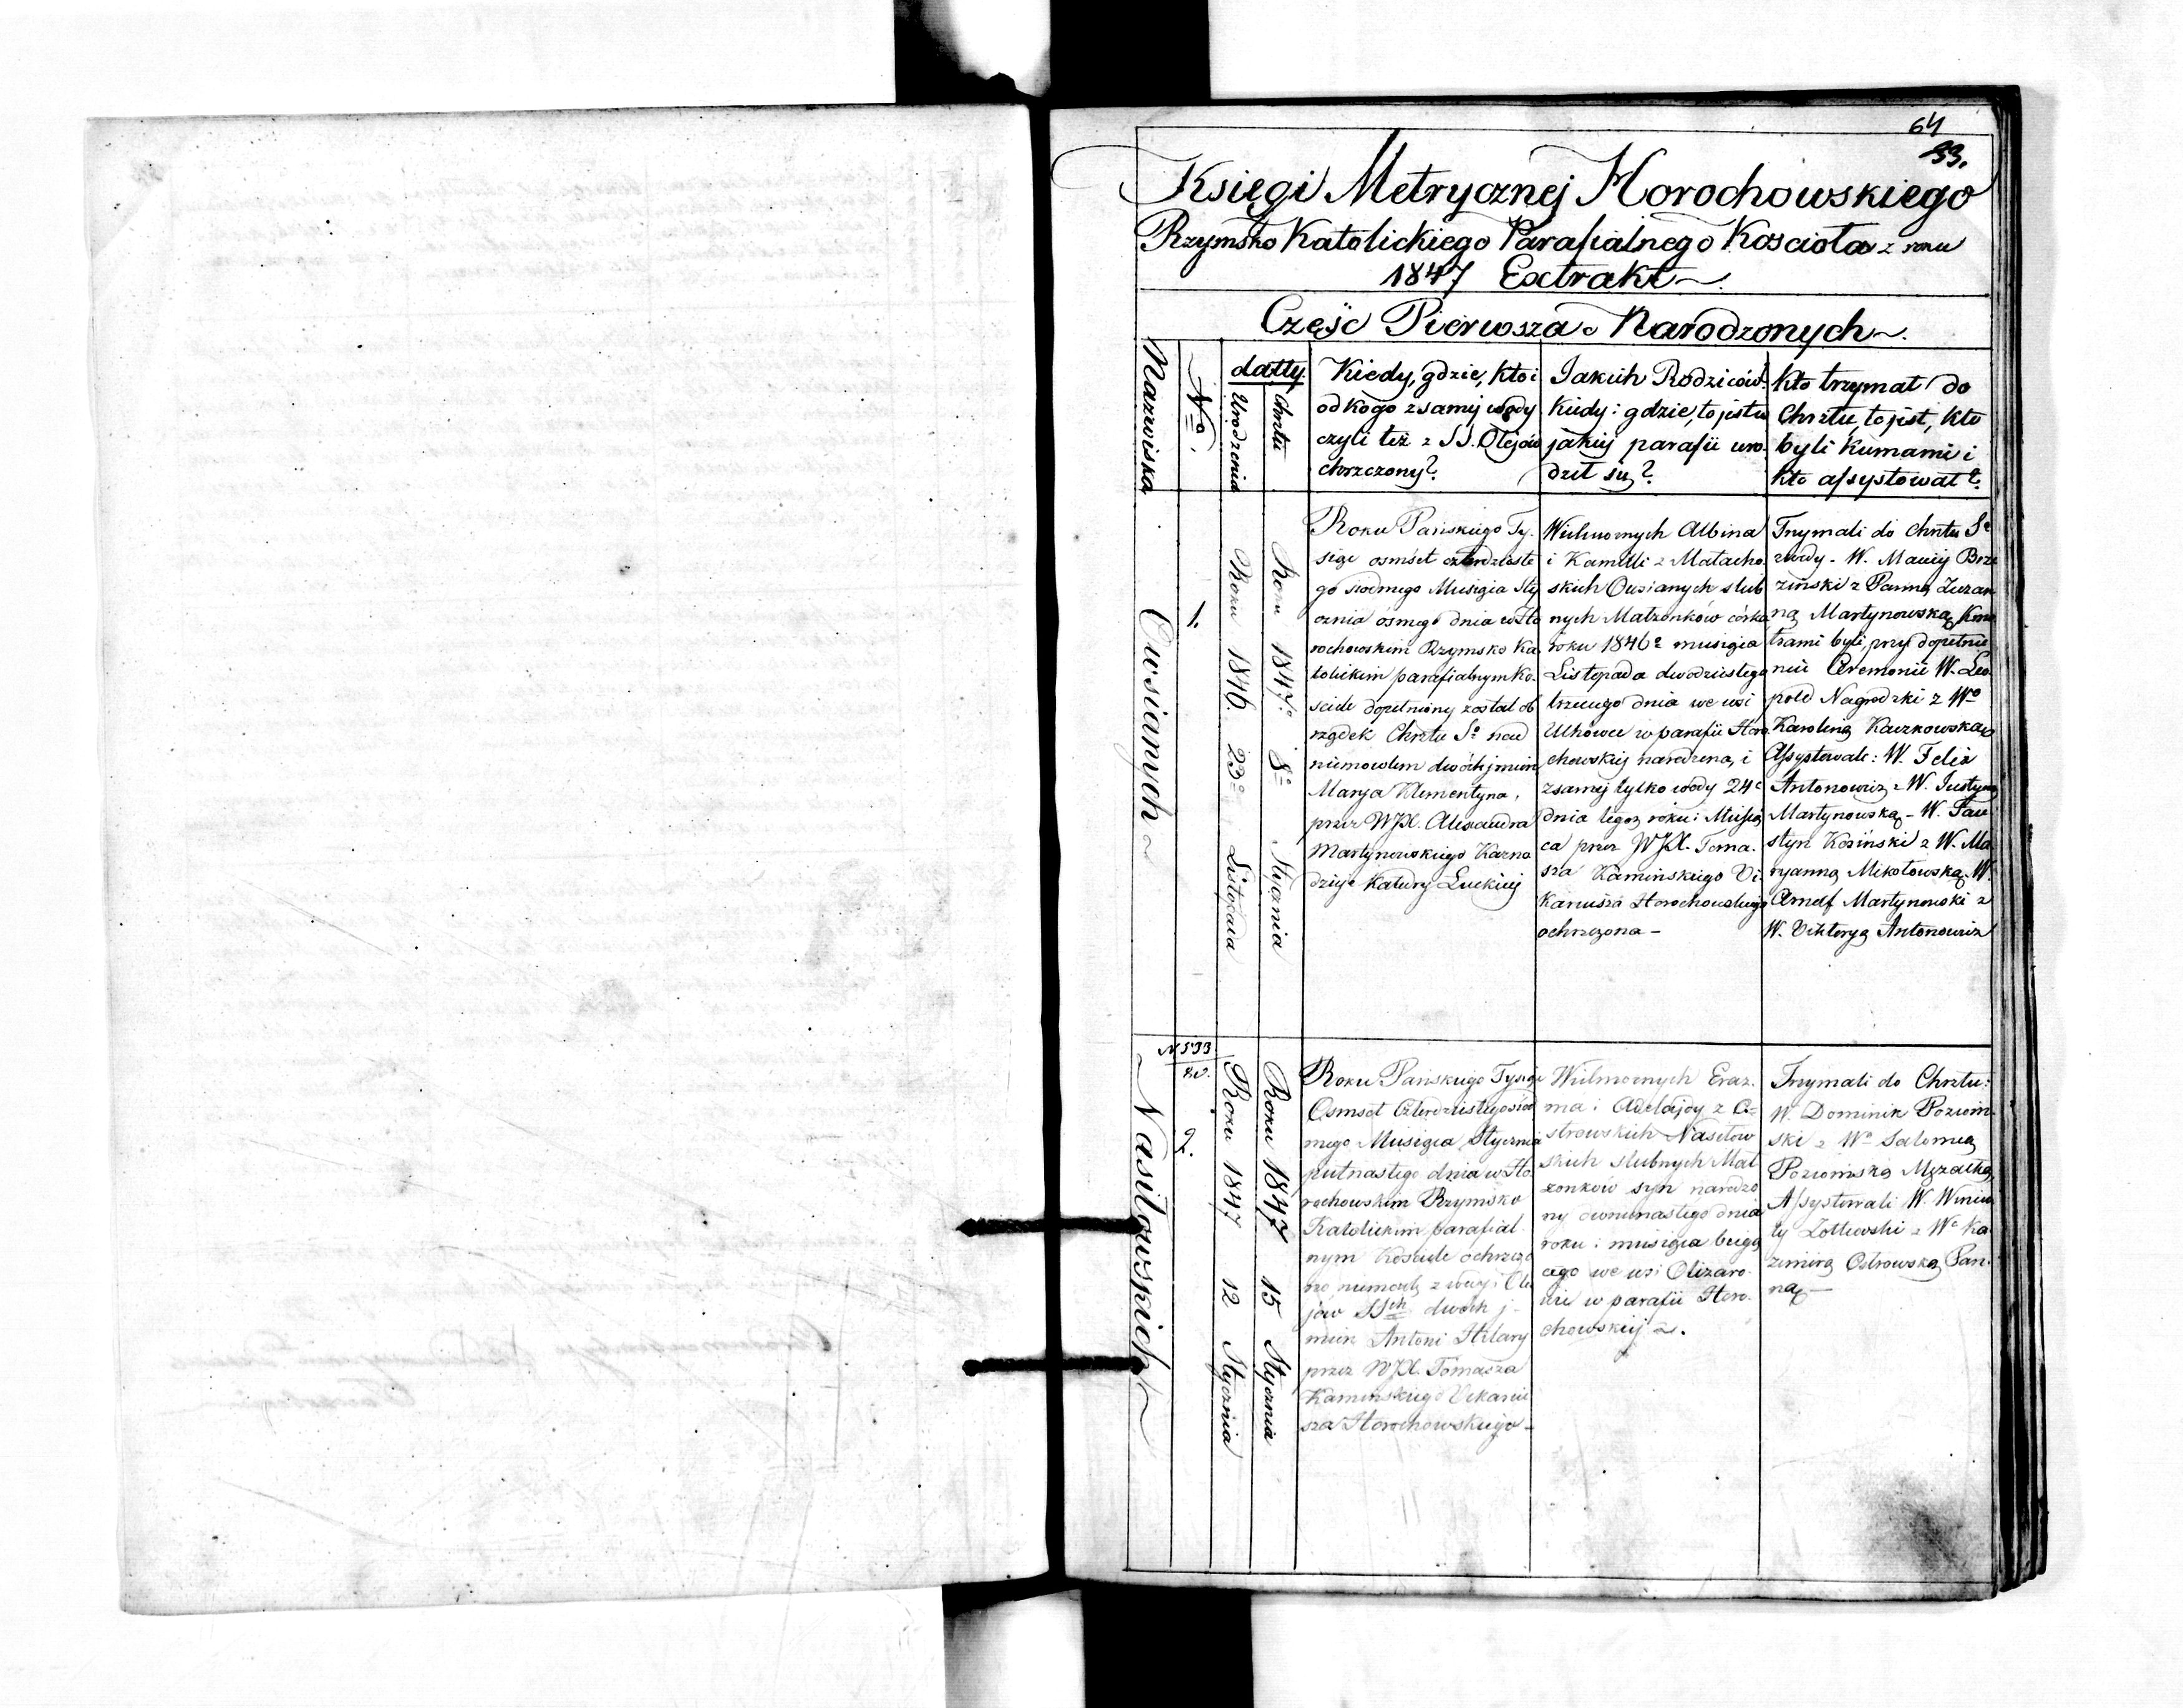 64
33.
Księgi Metrycznej Horochowskiego
Rzymsko Katolickiego Parafialnego Kościoła z roku
1847 Extrakt
Część Pierwsza o Narodzonych
Nazwiska
No
datty.
Urodzenia
Chrztu
Kiedy, gdzie, kto i
od kogo z samej wody
czyli też z SS. Olejów
chrzczony?
Jakich Rodziców?
Kiedy i gdzie, to jest w
jakiej parafii uro-
dził się?
Kto trzymał do
Chrztu, to jest, kto
byli Kumami i
kto assystował?
Owsianych
1.
Roku 1846. 23o Listopada
Roku 1847o 8o Stycznia
Roku Pańskiego Ty-
siąc osmset czterdzieste
go siodmego Miesiąca Sty
cznia osmego dnia w Ho
rochowskim Rzymsko Ka
tolickim parafialnym Ko-
sciele dopełniony został ob
rządek Chrztu So nad
niemowlem dwóch imion
Marya Klementyna,
przez WJX. Alexandra
Martynowskiego Kazno
dzieję Katedry Łuckiej
Wielmożnych Albina
i Kamilli z Małacho
skich Owsianych slub
nych Małżonków córka
roku 1846o miesiąca
Listopada dwodziestego
trzeciego dnia we wsi
Uhówce w parafii Horo
chowskiej narodzona, i
z samej tylko wody 24o
dnia tegoż roku i Miesią
ca przez WJX. Toma-
sza Kamińskiego Vi-
kariusza Horochowskiego
ochrzczona -
Trzymali do Chrztu So
z wody - W. Maciej Brze
ziński z Panną Zuzan
ną Martynowską, Kmo
trami byli, przy dopełnie
niu Ceremonii W. Leo
pold Nagrodzki z Wo
Karoliną Kaczkowską
Assystowali: W. Felix
Antonowicz z W. Justyną
Martynowską - W. Fau
styn Kosinski z W. Ma
ryanną Mikołowską - W.
Arnolf Martynowski z
W. Viktoryą Antonowicz
N 533
Nasiłowskich
2.
Roku 1847 12 Stycznia
Roku 1847 15 Stycznia
Roku Pańskiego Tysiąc
Osmset Czterdziestego siód
mego Miesiąca Stycznia
piętnastego dnia w Ho
rochowskim Rzymsko
Katolickim parafial
nym Kosciele ochrzczo
no niemowlę z wody i Ole
jów SSch dwóch i-
mion Antoni Hilary
przez WJX. Tomasza
Kamińskiego Vikariu
sza Horochowskiego -
Wielmożnych Eraz-
ma i Adelajdy z O-
strowskich Nasiłow
skich slubnych Mał
żonków syn narodzo
ny dwunastego dnia
roku i miesiąca bieżą
cego we wsi Olizaro-
wie w parafii Horo-
chowskiej.
Trzymali do Chrztu:
W. Dominik Poziom-
ski z Wo Salomeą
Poziomską Mężatką,
Assystowali W. Wincen
ty Zołtowski z Wo Ka
zimirą Ostrowską Pan-
ną -